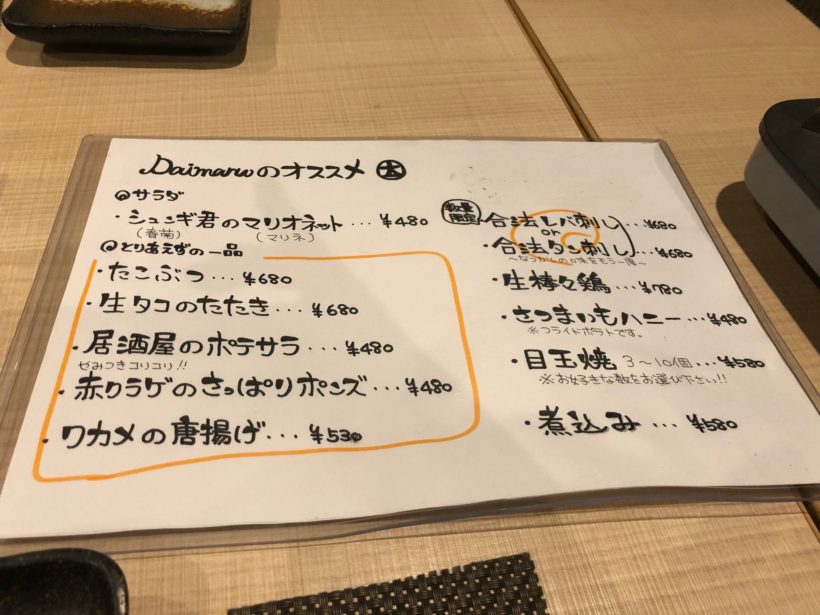 Daimaruのオススメ 大
サラダ
・シュンギ君のマリオネット...¥480
(春菊) (マリネ)
とりあえずの一品
・たこぶつ...¥680
・生タコのたたき...¥680
・居酒屋のポテサラ...¥480
やみつきコリコリ!!
・赤クラゲのさっぱりポンズ...¥480
・ワカメの唐揚げ...¥530
数量限定
合法レバ刺し...¥680
or
・合法タン刺し...¥680
〜なつかしの味をもう一度〜
・生棒々鶏...¥780
・さつまいもハニー...¥480
※フライドポテトです。
・目玉焼 3〜10個...¥580
※お好きな数をお選び下さい!!
・煮込み...¥580